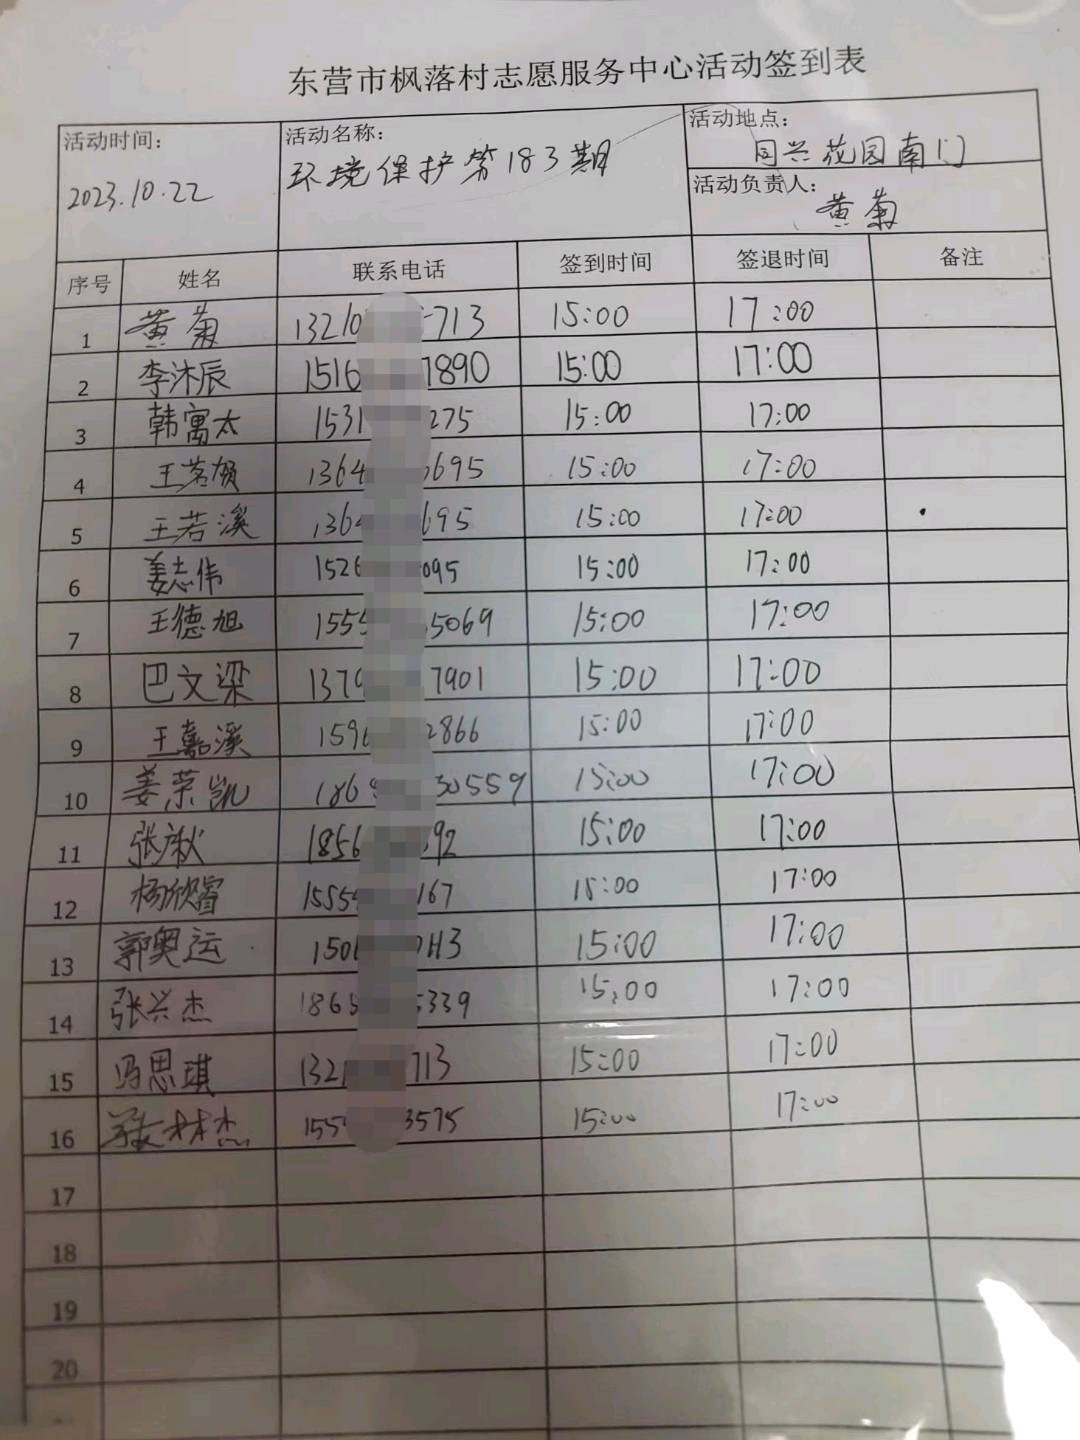 东营市枫落村志愿服务中心活动签到表
活动时间： 活动名称： 活动地点：
2023.10.22 环境保护第183期 同兴花园南门
活动负责人： 黄菊
序号 姓名 联系电话 签到时间 签退时间 备注
1 黄菊 13210 713 15:00 17:00
2 李沐辰 1516 7890 15:00 17:00
3 韩寓太 1531 275 15:00 17:00
4 王若 1364 695 15:00 17:00
5 王若溪 136 695 15:00 17:00
6 姜志伟 1526 095 15:00 17:00
7 王德旭 1555 5069 15:00 17:00
8 巴文梁 1379 7901 15:00 17:00
9 王嘉溪 1596 2866 15:00 17:00
10 姜荣凯 186 30559 15:00 17:00
11 张 1856 92 15:00 17:00
12 杨欣睿 1555 167 15:00 17:00
13 郭奥运 150 15:00 17:00
14 张兴杰 1865 5339 15:00 17:00
15 冯思琪 132 713 15:00 17:00
16 林杰 155 3575 15:00 17:00
17
18
19
20